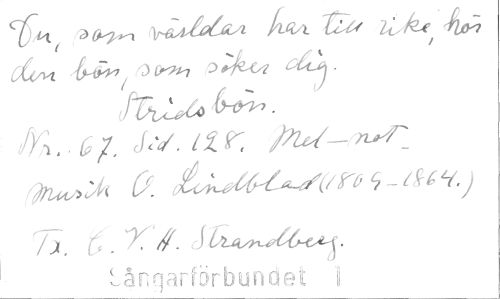 Du, som världar har till rike, hör
den bön, som söker dig.
Stridsbön.
Nr. 67. Sid. 128. Mel-not-
musik O. Lindblad (1809-1864.)
Tx. C. V. A. Strandberg.
Sångarförbundet 1